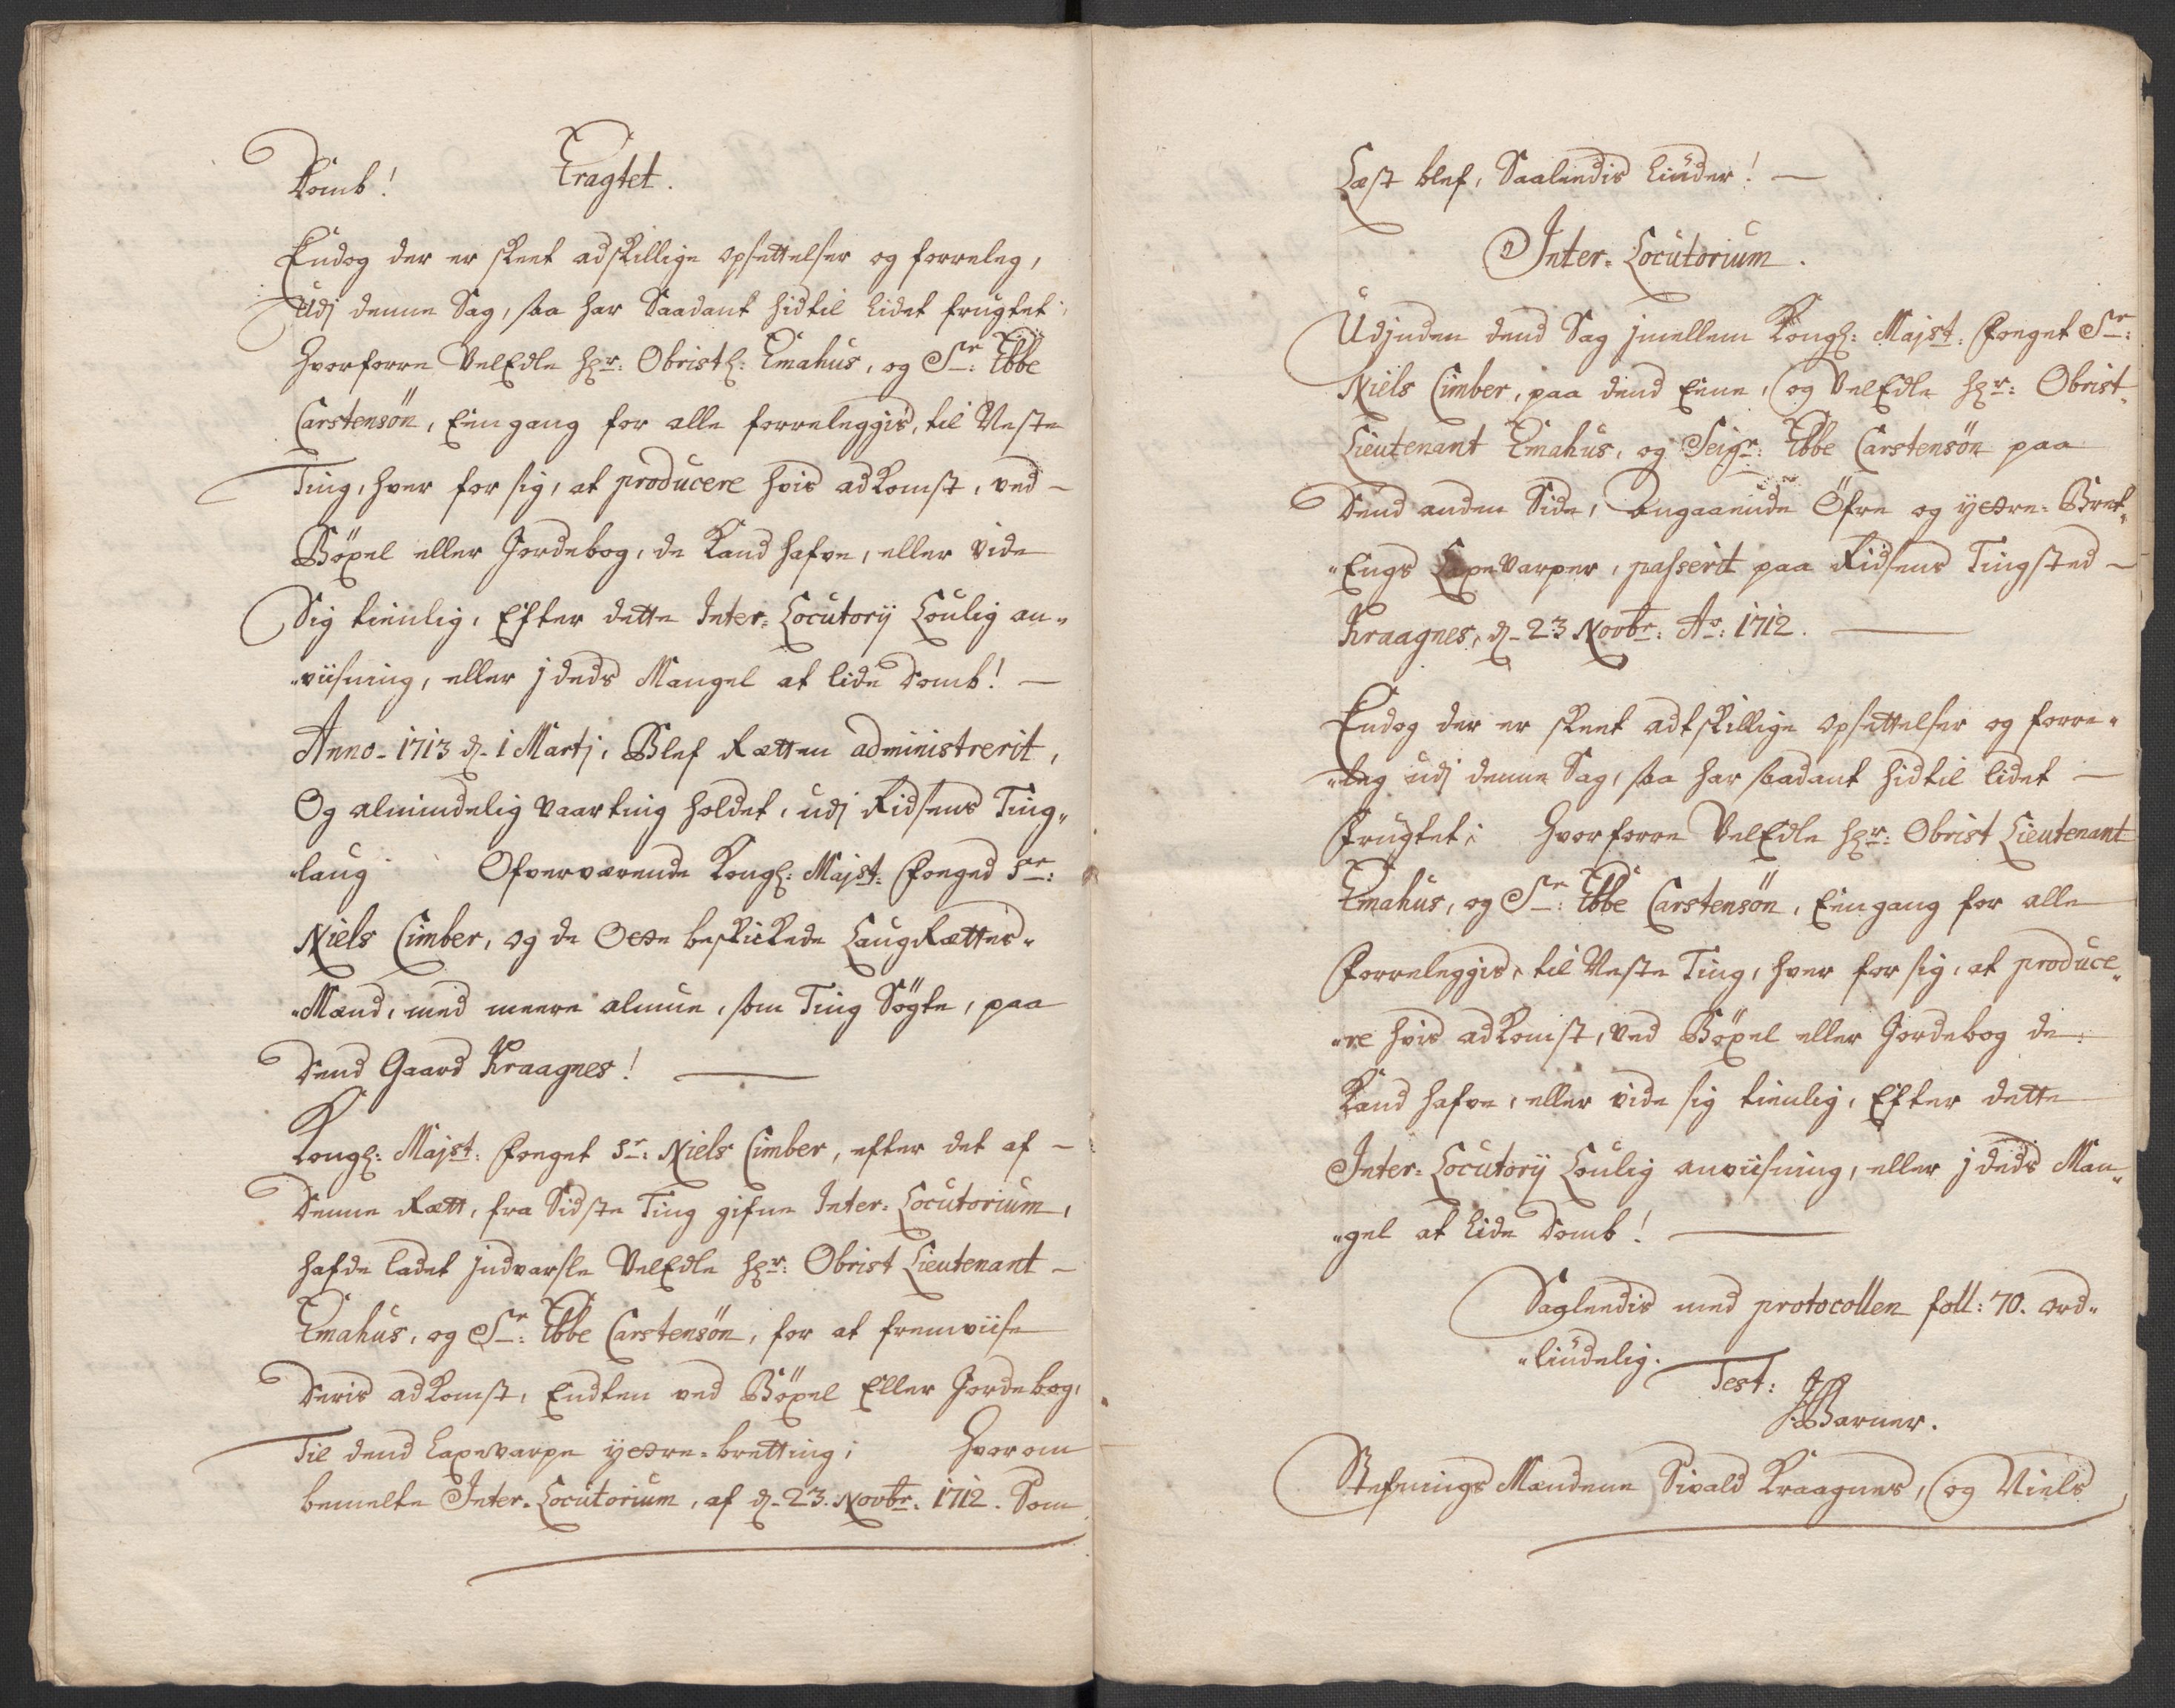 Domb! Eragtet.
Endog der er skeet adskillige opsettelser og forreleg,
Udj denne Sag, saa har Saadant hidtil lidet frugtet;
Hvorforre VelEdle Hr: Obristl: Emahus, og Sr: Ebbe
Carstensön, Eengang for alle forreleggis, til Neste
Ting, hver for sig, at producere hvis adkomst, ved
Böxel eller Jordebog, de Kand hafve, eller vide
Sig tienlig, Efter dette Inter-Locutorij Loulig an-
"viisning, eller j deds Mangel at lide Domb! —
Anno-1713 d. 1 Martj, Blef Rætten administrerit,
Og almindelig vaarting holdet, udj Ridsens Ting-
"laug Ofverværende Kongl: Majst: Foged Sr:
Niels Cimber, og de Otte beskickede LaugRættes-
"Mænd, med meere almue, som Ting Sögte, paa
Dend Gaard Kraagnes! —
Kongl: Majst: Foget Sr: Niels Cimber, efter det af —
Denne Rætt, fra Sidste Ting gifne Inter-Locutorium,
hafde ladet jndvarsle VelEdle Hr: Obrist Lieutenant —
Emahus, og Sr: Ebbe Carstensön, for at fremviise
Deris adkomst, Endten ved Böxel Eller Jordebog,
Til dend Laxevarpe ÿttre-bretting; Hvorom
bemelte Inter-Locutorium, af d. 23. Novbr. 1712. Som
Læst blef, Saalendis Liüder! —
Inter-Locutorium.
Udjnden dend Sag jmellem Kongl: Majst: Foget Sr:
Niels Cimber, paa dend Eene, og VelEdle Hr: Obrist-
Lieutenant Emahus, og Seigr: Ebbe Carstensön paa
Dend anden Side, Angaaende Öfre og ÿttre-Bret-
"Engs Laxevarper, passerit paa Ridsens Tingsted —
Kraagnes, d. 23 Novbr: Ao: 1712. —
Endog der er skeet adtskillige opsettelser og forre-
"leg udj denne Sag, saa har saadant hidtil lidet —
frugtet; Hvorforre VelEdle Hr: Obrist Lieutenant
Emahus, og Sr: Ebbe Carstensön, Eengang for alle
forreleggis, til Neste Ting, hver for sig, at produce-
"re hvis adkomst, ved Böxel eller Jordebog de
Kand hafve, eller vide sig tienlig, Efter dette
Inter-Locutorij Loulig anviisning, eller j deds Man-
"gel at lide Domb! —
Saglendis med protocollen foll: 70. ord-
"liüdelig.
Test:
Barner.
Stefnings Mændene Sivald Kraagnes, og Niels